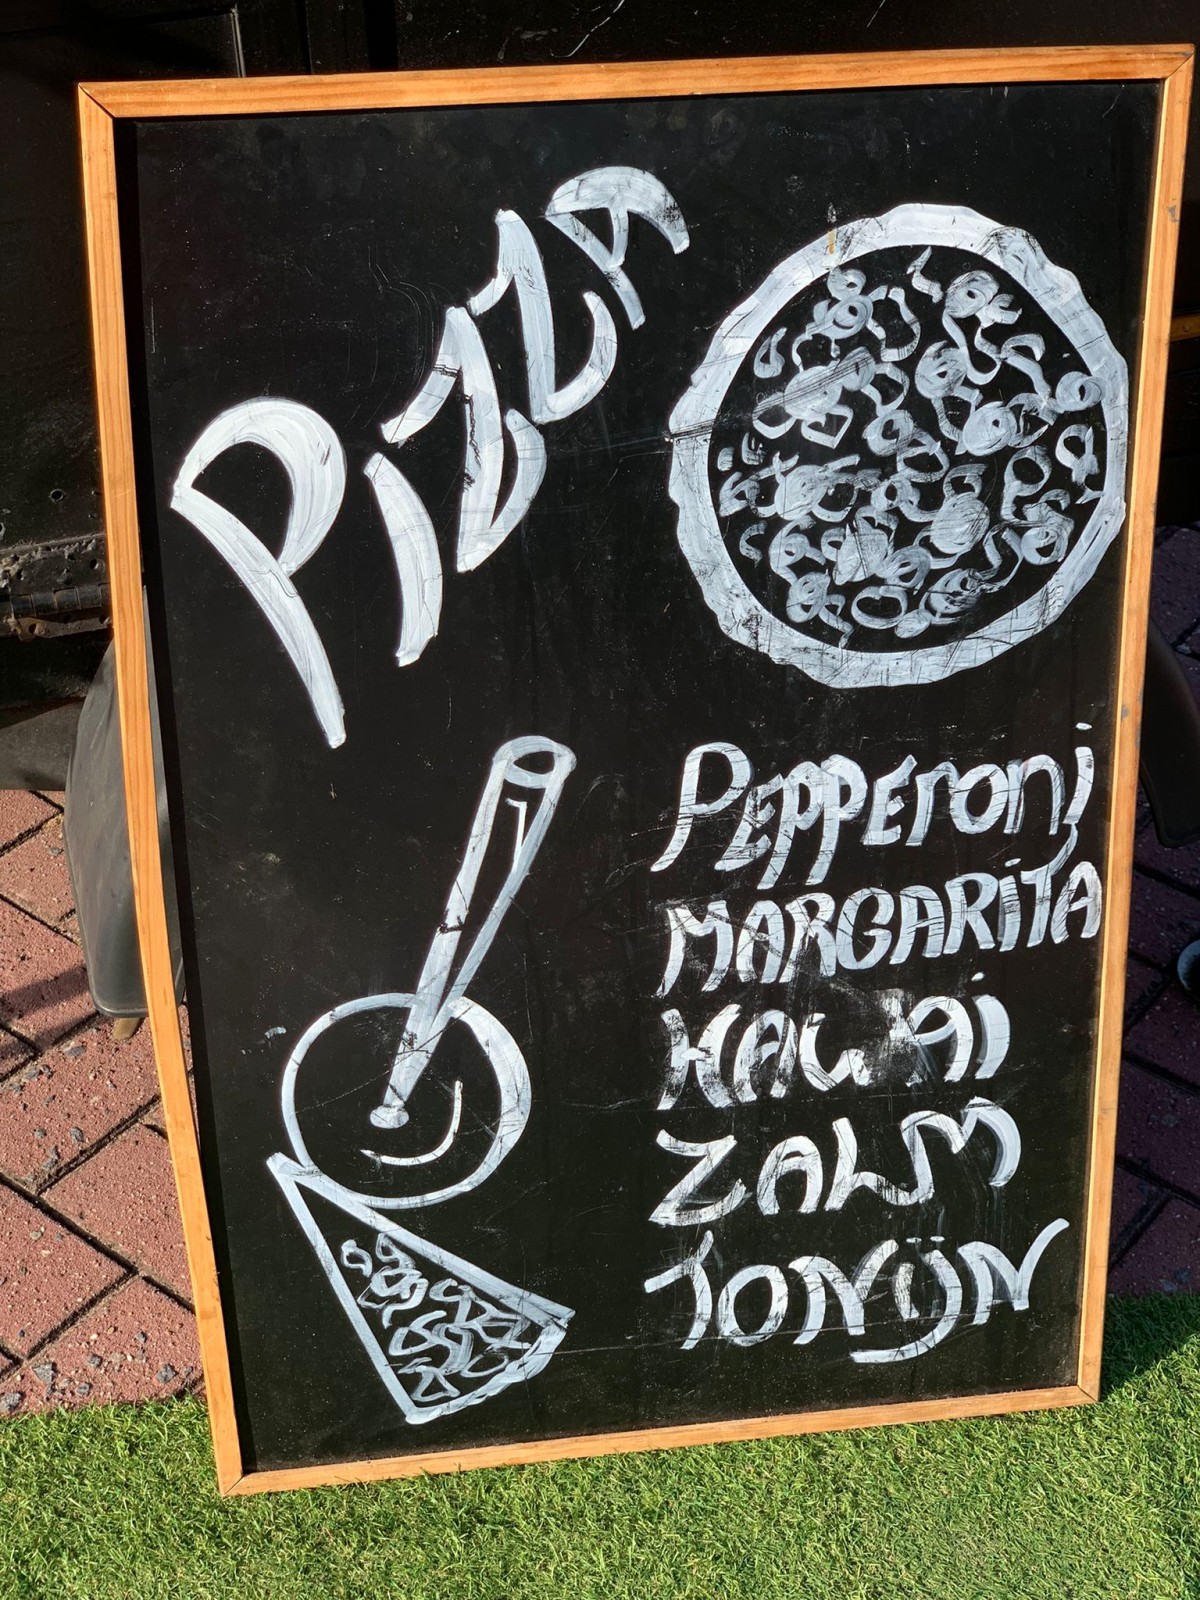 PIZZA
PEPPEroni
MARGARiTA
HAWAi
ZALM
TONijN